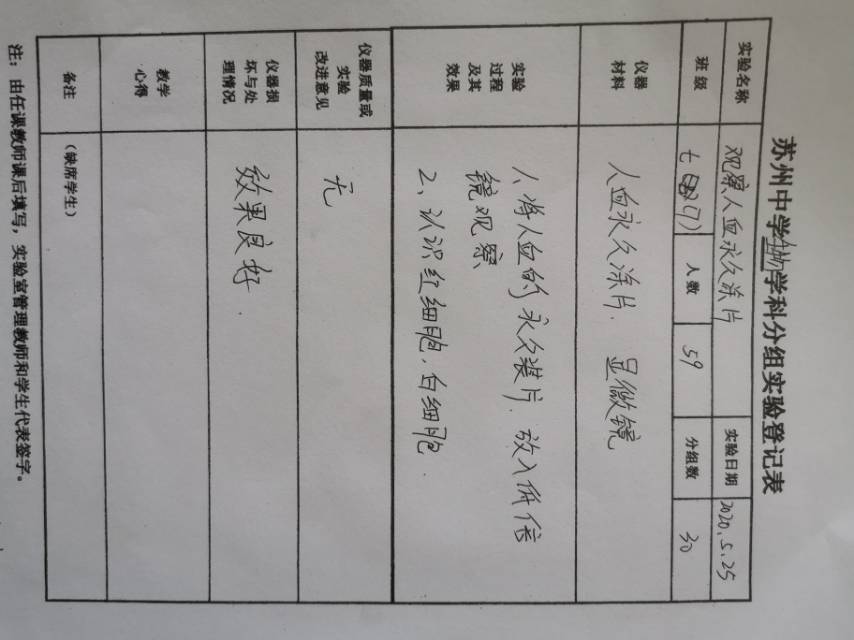 苏州中学生物学科分组实验登记表
实验名称 观察人血永久涂片 实验日期 2020.5.25
班级 七 (7) 人数 59 分组数 30
仪器材料 人血永久涂片. 显微镜
实验过程及其效果
1、将人血的永久装片. 放入低倍
镜观察
2、认识红细胞. 白细胞.
仪器质量或实验改进意见 无
仪器损坏与处理情况 效果良好.
教学心得
备注 (缺席学生)
注：由任课教师课后填写，实验室管理教师和学生代表签字。